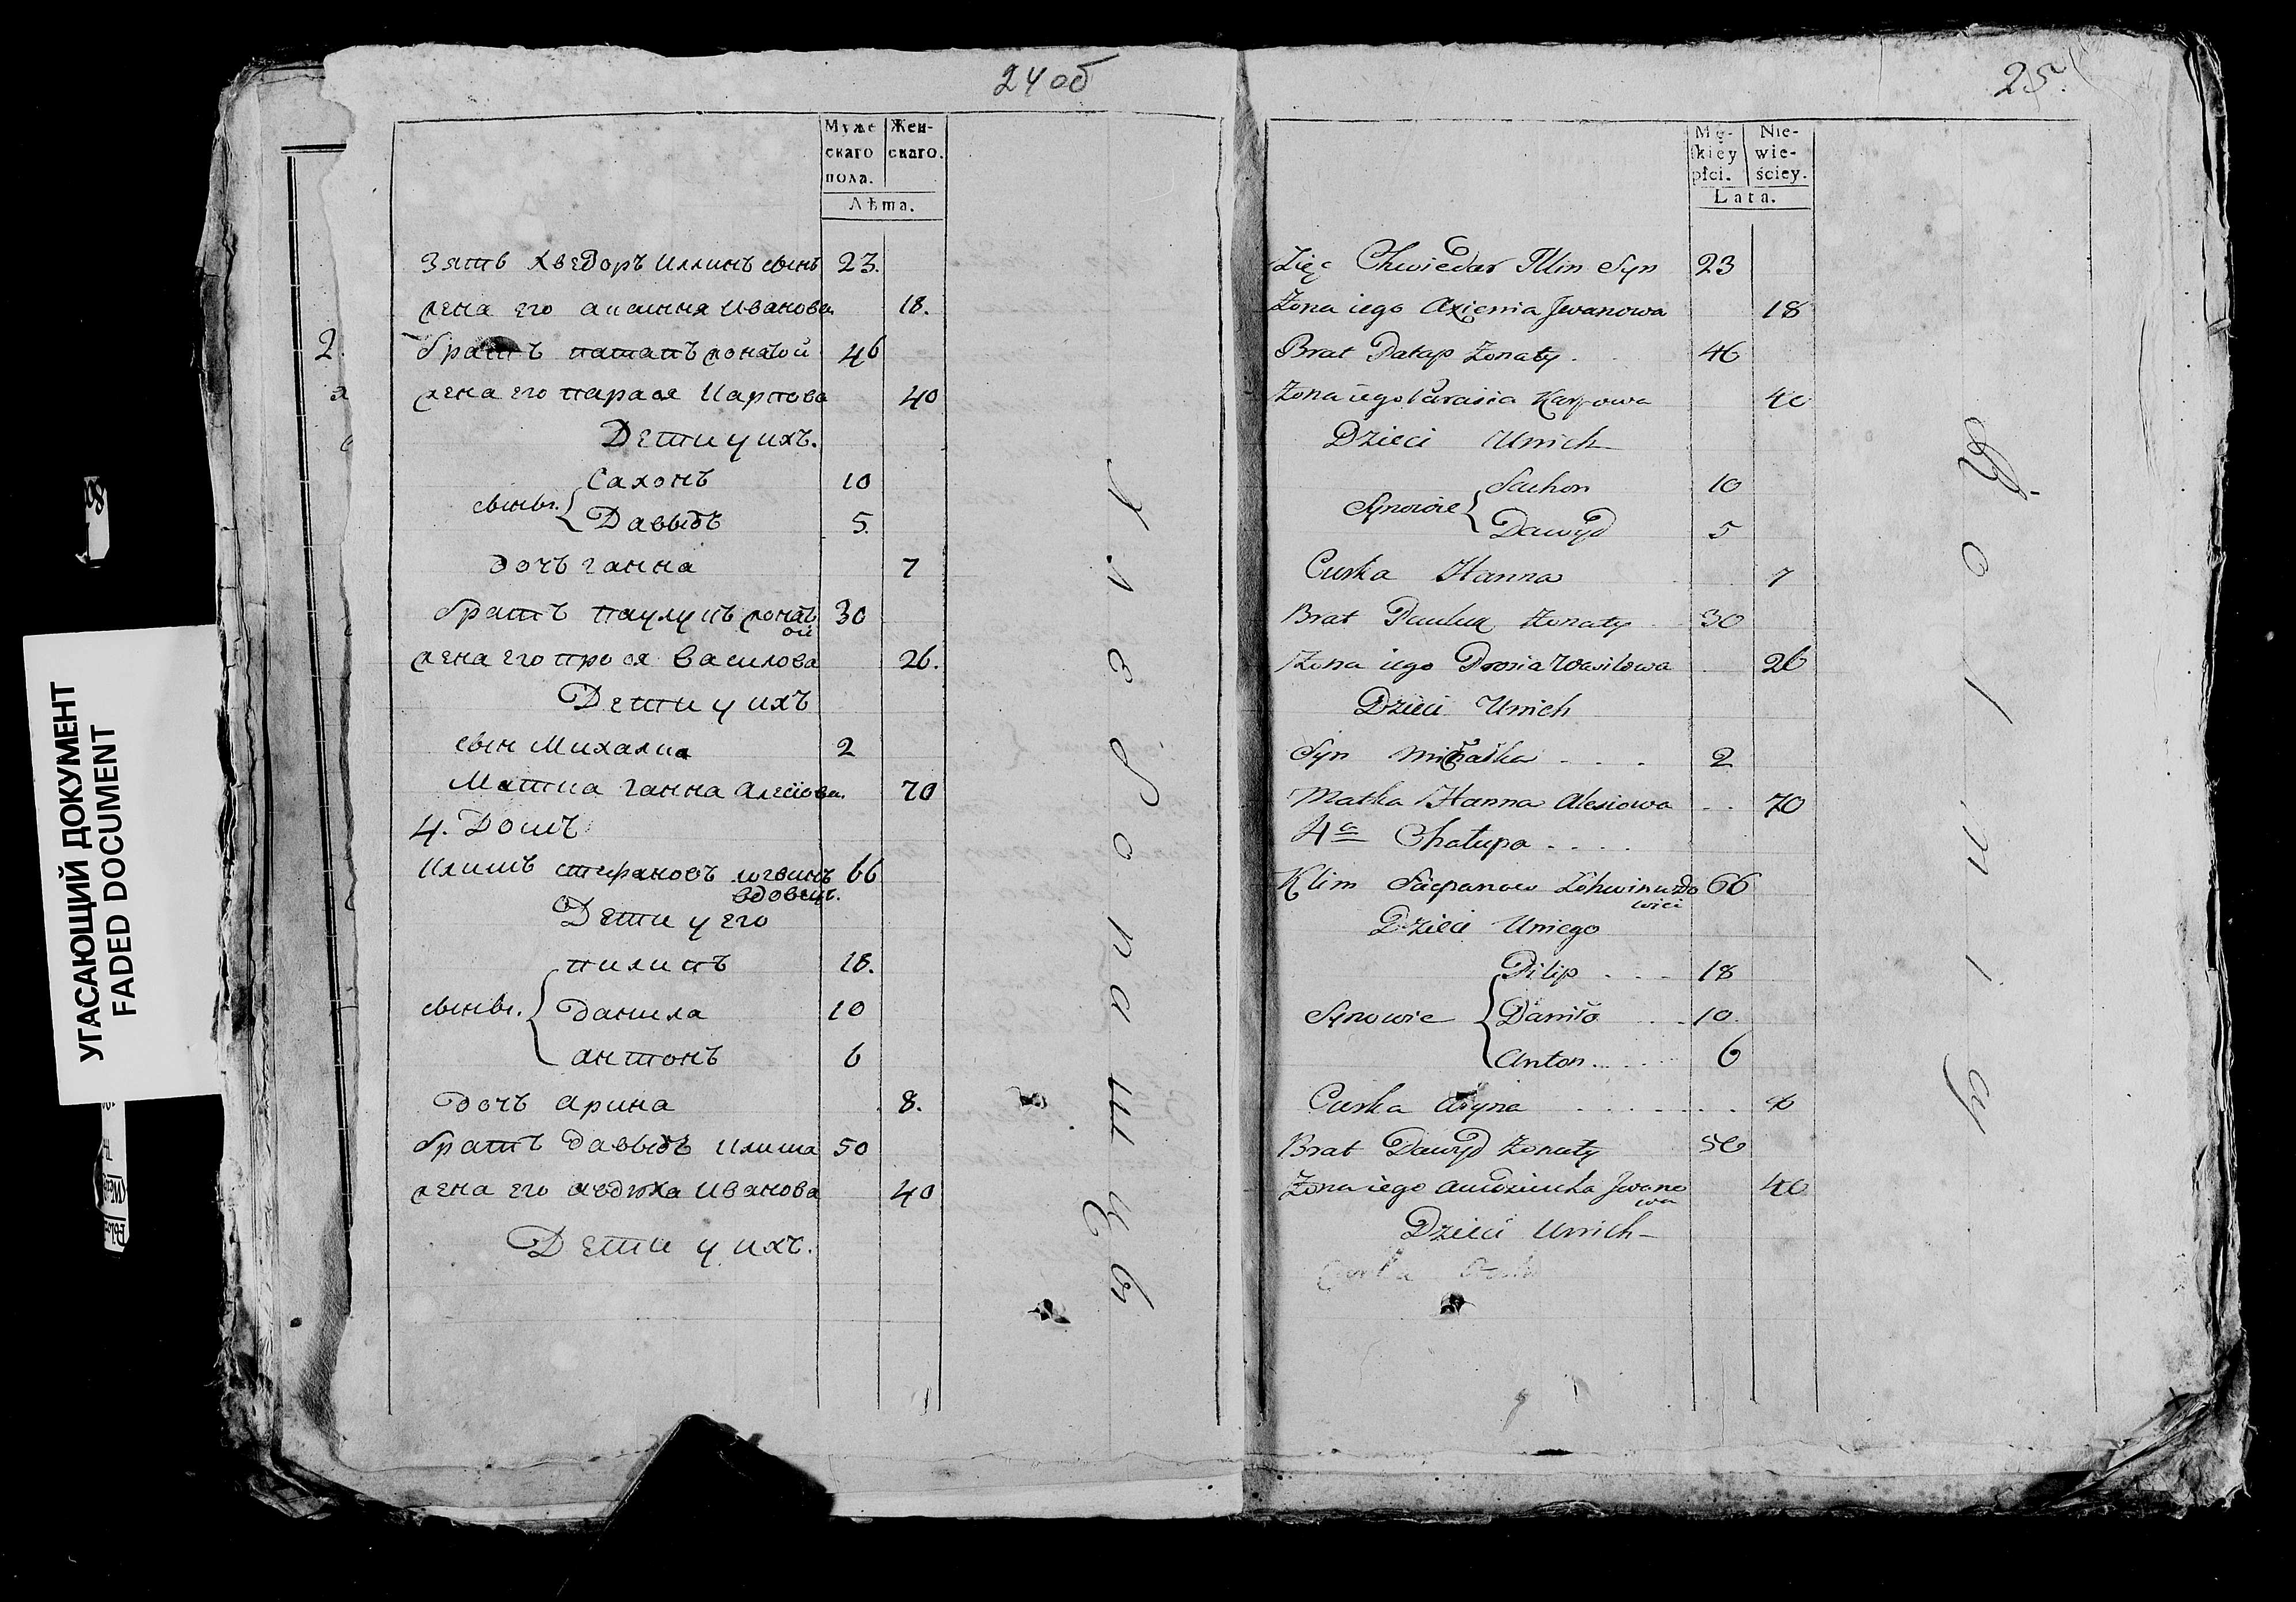 24 об
Муже скаго пола.
Жен- скаго.
Лѣта.
Зять Хведоръ Иллинъ сынъ 23.
жена его аксиння Иванова 18.
2.
братъ патапъ жонатой 46
жена его парася Карпова 40
Дети у ихъ.
сыны. Сахонъ 10
Давыдъ 5.
дочъ ганна 7
братъ паулукъ жонатой 30
жена его прося Василова 26.
Дети у ихъ
сын Михалка 2
Матка ганна алесіова. 70
4. Домъ
Климъ стефановъ логвинъ 66
вдовецъ.
Дети у его
сыны. пилипъ 18.
Данила 10
антонъ 6
Дочъ арина 8.
братъ давыдъ 50
жена его авдюха Иванова 40
Дети у ихъ.
25.
Mę- skiey płci.
Nie- wie- ściey.
Lata.
Zięc Chwiedar Illin Syn 23
Żona iego Axienia Jwanowa 18
Brat Patap Żonaty 46
Żona iego Parasia Karpowa 40
Dzieci Unich
Synowie Sachon 10
Dawyd 5
Curka Hanna 7
Brat Pauluk Żonaty 30
Żona iego Prosia Wasilowa 26
Dzieci Unich
Syn Michałka 2
Matka Hanna Alesiowa 70
4a Chałupa
Klim Sciepanow 66
Dzieci Uniego
Synowie Pilip 18
Daniło 10
Anton 6
Curka Aryna 8
Brat Dawyd Żonaty 50
Żona iego Audziucha Jwanowa 40
Dzieci Unich
УГАСАЮЩИЙ ДОКУМЕНТ
FADED DOCUMENT